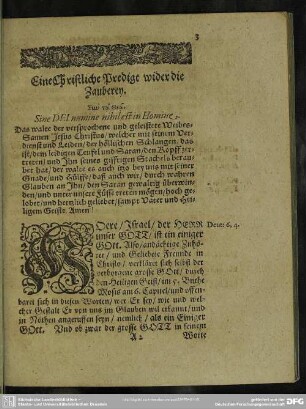 3
Eine Christliche Predigt wider die
Zauberey.
Sine DEI numine nihil est in Homine.
Das walte der versprochene und geleistete Weibes-
Samen Jesus Christus/ welcher mit seinem Ver-
dienst und Leiden/ der höllischen Schlangen/ das
ist/ dem leidigen Teufel und Satan/ den Kopff zer-
treten/ und Ihn seines gifftigen Stachels berau-
bet hat/ der walte es auch bey uns mit seiner
Gnade/ und Hülffe/ daß auch wir/ durch wahren
Glauben an Ihn/ den Satan gewaltig überwin-
den/ und unter unsere Füsse treten mögen/ hoch ge-
lobet/ und hertzlich geliebet/ sampt Vater und Hei-
ligem Geiste. Amen!
HOere/ Israel/ der HERR
Deut: 6. 4.
unser GOTT/ ist ein einiger
GOtt. Also/ andächtige Zuhö-
rer/ und Geliebte Freunde in
Christo/ verkläret sich selbst der
verborgene grosse GOtt/ durch
den Heiligen Geist/ im 5. Buche
Mosis am 6. Capitel/ und offen-
baret sich in diesen Worten/ wer Er sey/ wie und wel-
cher Gestalt Er von uns im Glauben wil erkant/ und
in Nöthen angeruffen seyn/ nemlich/ als ein Einiger
GOtt. Und ob zwar der grosse GOTT in seinem
A 2
Worte